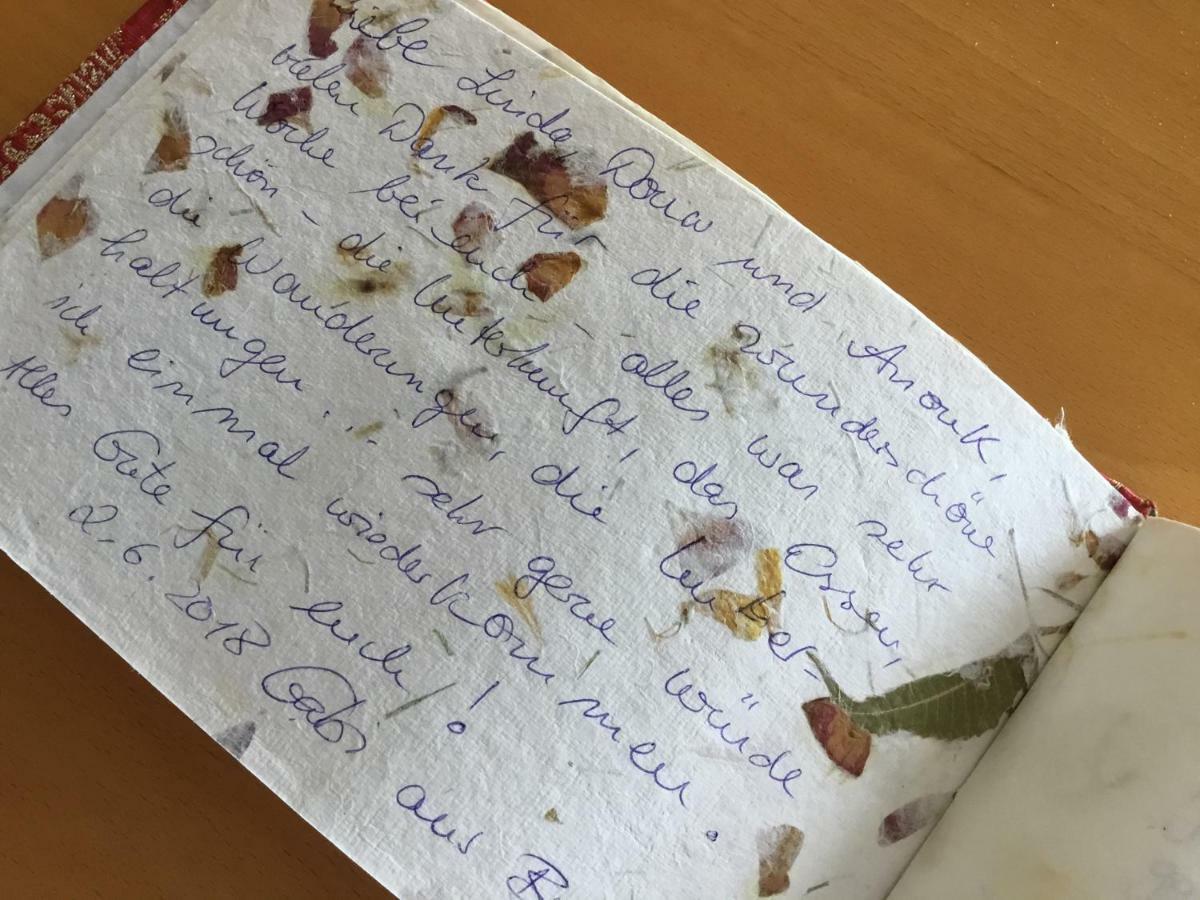 Liebe Linda, Douw und Anouk,
vielen Dank für die wunderschöne
Woche bei euch - alles war sehr
schön - die Unterkunft, das Essen,
die Wanderungen, die Unter-
haltungen... sehr gerne würde
ich einmal wiederkommen.
Alles Gute für euch!
2.6.2018 Gabi aus